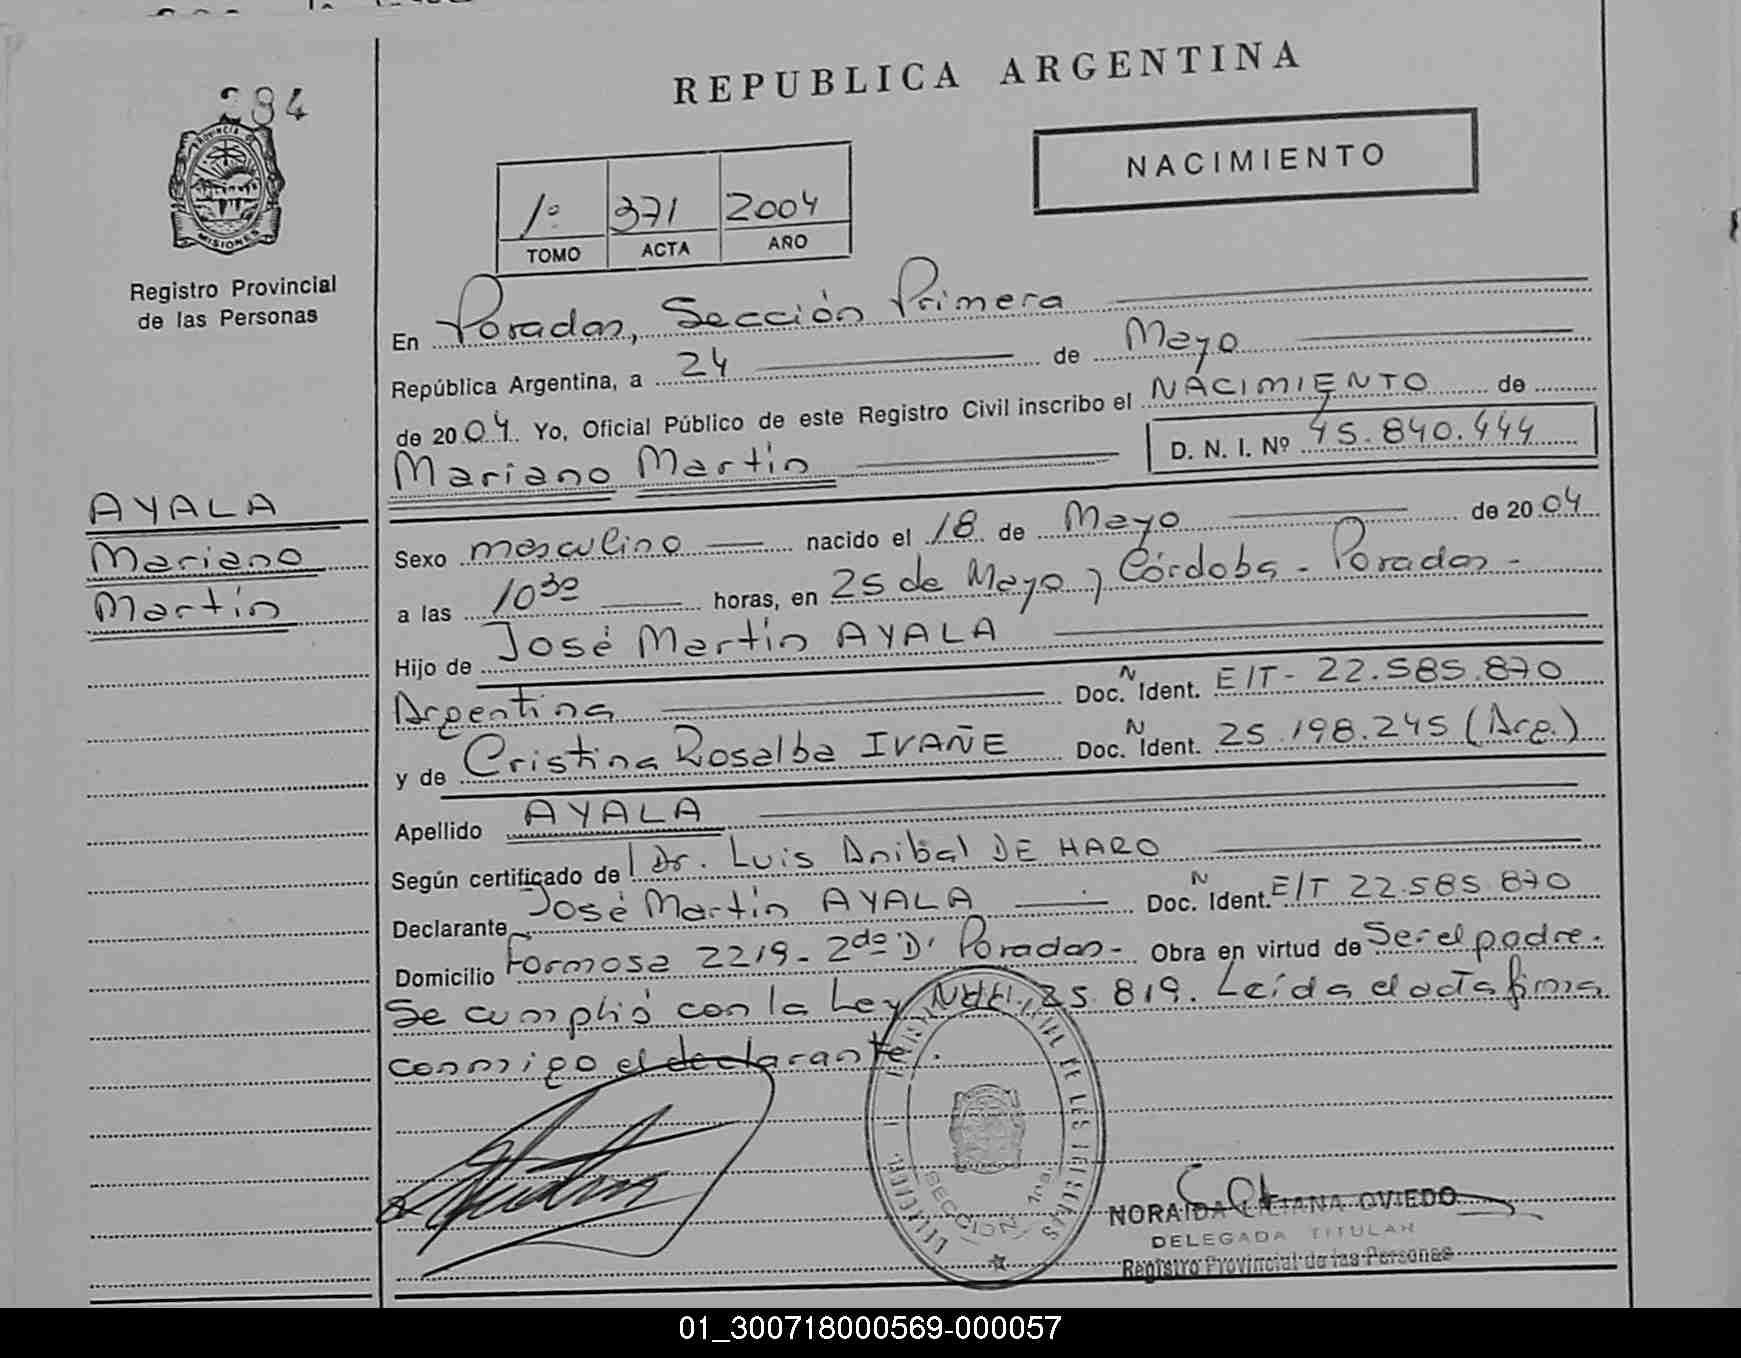 284
PROVINCIA DE
MISIONES
Registro Provincial
de las Personas
AYALA
Mariano
Martín
REPUBLICA ARGENTINA
NACIMIENTO
1º 371 2004
TOMO ACTA AÑO
En Posadas, Sección Primera
República Argentina, a 24 de Mayo
de 2004. Yo, Oficial Público de este Registro Civil inscribo el NACIMIENTO de
Mariano Martín D. N. I. Nº 45.840.444
Sexo masculino nacido el 18 de Mayo de 2004
a las 10 30 horas, en 25 de Mayo y Córdoba - Posadas -
Hijo de José Martín AYALA
Argentina Doc. N Ident. E/T - 22.585.870
y de Cristina Rosalba IVAÑE Doc. N Ident. 25.198.245 (Arg.)
Apellido AYALA
Según certificado del Dr. Luis Anibal DE HARO
Declarante José Martín AYALA Doc. N Ident. E/T 22.585.870
Domicilio Formosa 2219 - 2do "D" Posadas - Obra en virtud de Ser el padre.
Se cumplió con la Ley Nac. 25.819. Leída el acta firma
conmigo el declarante.
SECCION 1ra
NORAIDA LILIANA OVIEDO
DELEGADA TITULAR
Registro Provincial de las Personas
01_300718000569-000057